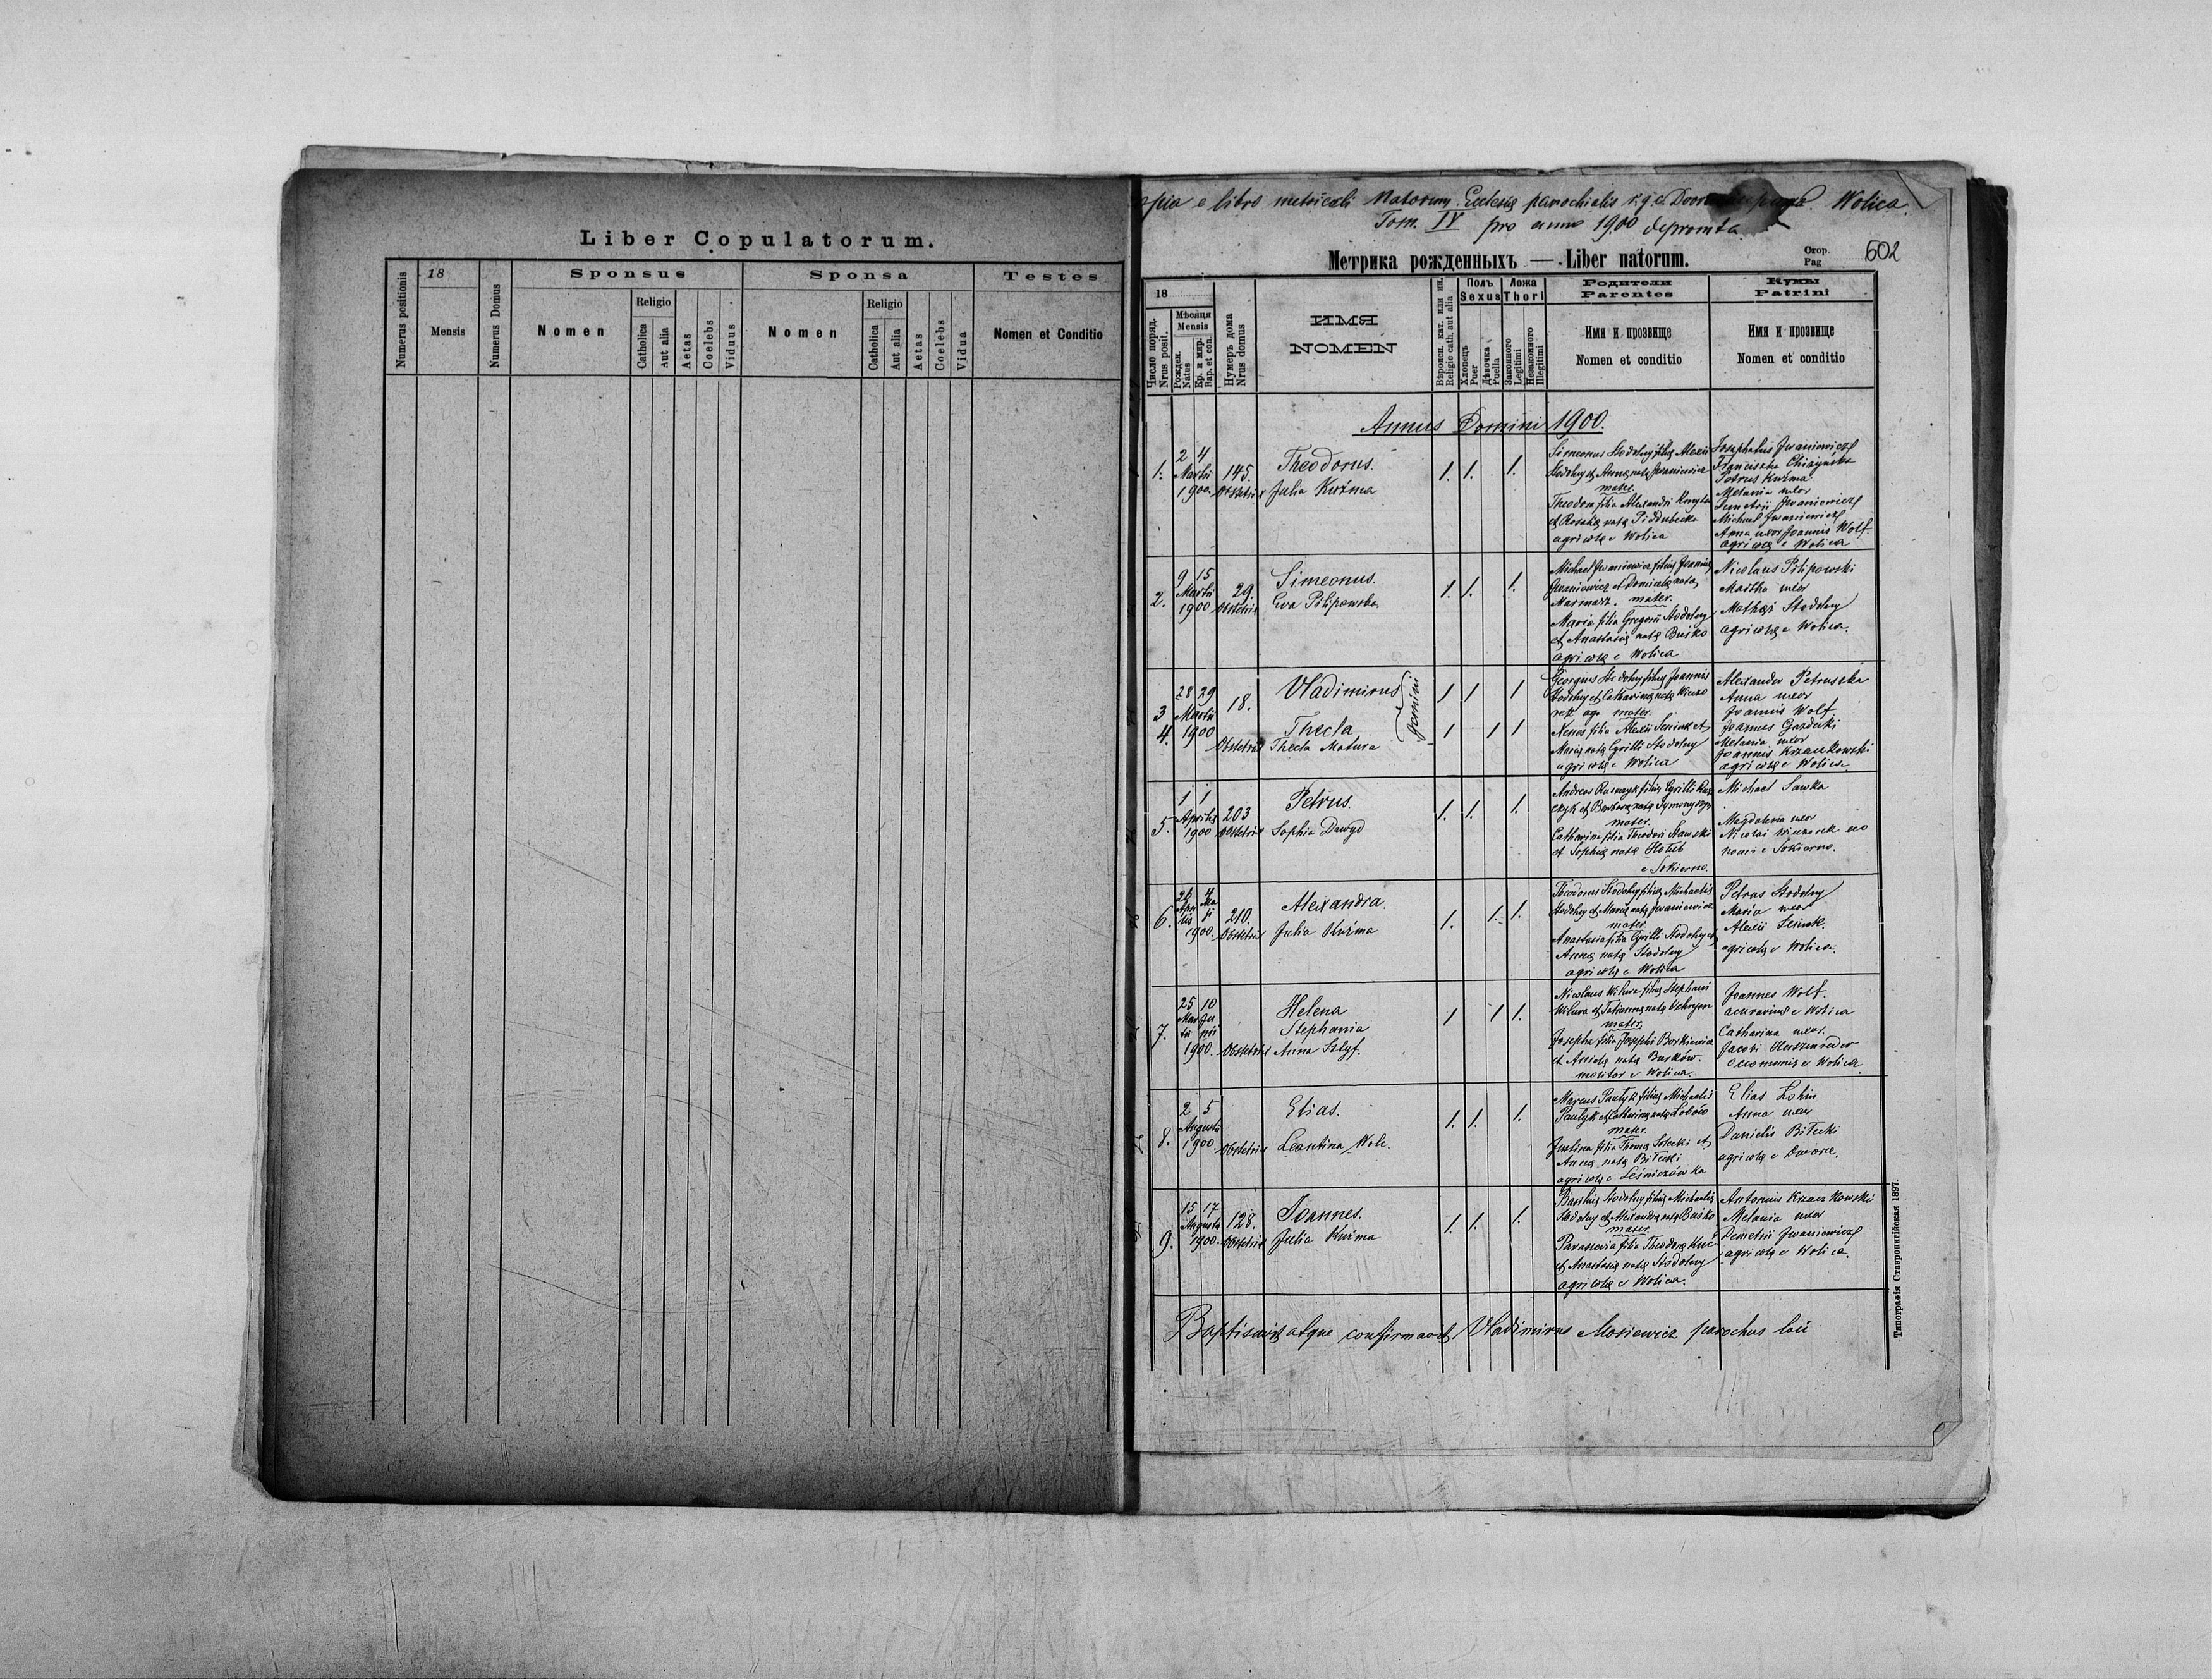 Liber Copulatorum.
Numerus positionis
18
Mensis
Numerus Domus
Sponsus
Nomen
Religio
Catholica
Aut alia
Aetas
Coelebs
Viduus
Sponsa
Nomen
Religio
Catholica
Aut alia
Aetas
Coelebs
Vidua
Testes
Nomen et Conditio
opia e libro metricali Natorum Ecclesiæ parochialis r. g. c. Wolica.
Tom. IV pro anno 1900 depromta.
Метрика рожденныхъ — Liber natorum.
Стор.
Pag
602
18
Число поряд.
Nrus posit.
Мѣсяця
Mensis
Рожден.
Natus
Кр. и мир.
Bap. et con.
Нумеръ дома
Nrus domus
ИМЯ
NOMEN
Вѣроисп. кат. или ин.
Religio cath. aut alia
Полъ
Sexus
Хлопецъ
Puer
Дѣвочка
Puella
Ложа
Thori
Законного
Legitimi
Незаконного
Illegitimi
Родители
Parentes
Имя и прозвище
Nomen et conditio
Кумы
Patrini
Имя и прозвище
Nomen et conditio
Annus Domini 1900.
1.
2 4
Martii
1900
145.
Obstetrix
Theodorus.
Julia Kuźma
1. 1. 1.
Simeonus Stodolny filius Alexii
Stodolny et Annæ natæ Iwaniewicz
mater.
Theodora filia Alexandri
et Rosaliæ natæ Piddubecka
agricolæ e Wolica
Josephatus Iwaniewicz
Petrus Kuźma
Melania uxor
Iwaniewicz
Michael Iwaniewicz
Anna uxor Joannis Wolf
agricolæ e Wolica
2.
9 15
Martii
1900
29.
Obstetrix
Simeonus.
Eva Pilipowska.
1. 1. 1.
Michael Iwaniewicz filius Joannis
Iwaniewicz et nata
mater.
Maria filia Gregorii Stodolny
et Anastasiæ natæ Buśko
agricolæ e Wolica
Nicolaus Pilipowski
Martha uxor
Mathæi Stodolny
agricolæ e Wolica.
3
4.
28 29
Martii
1900
18.
Obstetrix
Vladimirus
Thecla
Gemini
Thecla Matura
1 1 1
1 1 1
Georgius Stodolny filius Joannis
Stodolny et Catharinæ natæ
mater.
Xenia filia Alexii Seniuk et
Mariæ natæ Cyrilli Stodolny
agricolæ e Wolica
Alexander Petruszka
Anna uxor
Joannis Wolf
Joannes Gazdecki
Melania uxor
Joannis Kraczkowski
agricolæ e Wolica
5.
1 1
Aprilis
1900
203
Obstetrix
Petrus.
Sophia Dawyd
1. 1. 1.
mater.
Catharina filia Theodori Stawski
et Sophiæ natæ Hołub
e Sokierno.
Michael Sawka
Magdalena uxor
Nicolai Wieczorek eco
nomi e Sokierno.
6.
26 4
Apri Ma
lis ji
1900.
210.
Obstetrix
Alexandra.
Julia Kuźma
1. 1. 1.
Theodorus Stodolny filius Michaelis
Stodolny et Mariæ natæ Iwaniewicz
mater.
Anastasia filia Cyrilli Stodolny et
Annæ natæ Stodolny
agricolæ e Wolica
Petrus Stodolny
Maria uxor
Alexii Seniuk.
agricolæ e Wolica.
7.
25 10
1900.
Obstetrix
Helena
Stephania
Anna Szlyf.
1 1 1.
Nicolaus Wilura filius Stephani
mater.
Josepha filia Josephi Borkiewicz
molitor e Wolica.
Joannes Wolf.
e Wolica
Catharina uxor.
Jacobi
e Wolica
8.
2 5
Augusti
1900.
Obstetrix
Elias.
Leontina Wolc.
1. 1. 1.
Marcus Pawlyk filius Michaelis
Pawlyk et Catharinæ natæ
mater.
Justina filia Thomæ Solecki et
Annæ natæ Bilecki
agricolæ e Leśniczówka
Elias
Anna uxor
Danielis Bilecki
agricolæ e Dworce.
9.
15 17
Augusti
1900.
128.
Obstetrix
Joannes.
Julia Kuźma
1. 1. 1.
Basilius Stodolny filius Michaelis
Stodolny et Alexandræ natæ Buśko
mater.
Parascevia filia Theodori Kuć
et Anastasiæ natæ Stodolny
agricolæ e Wolica.
Antonius Kraczkowski
Melania uxor
Demetrii Iwaniewicz
agricolæ e Wolica.
Baptisavit atque confirmavit Vladimirus Mosiewicz parochus loci
Типографія Ставропигійская 1897.